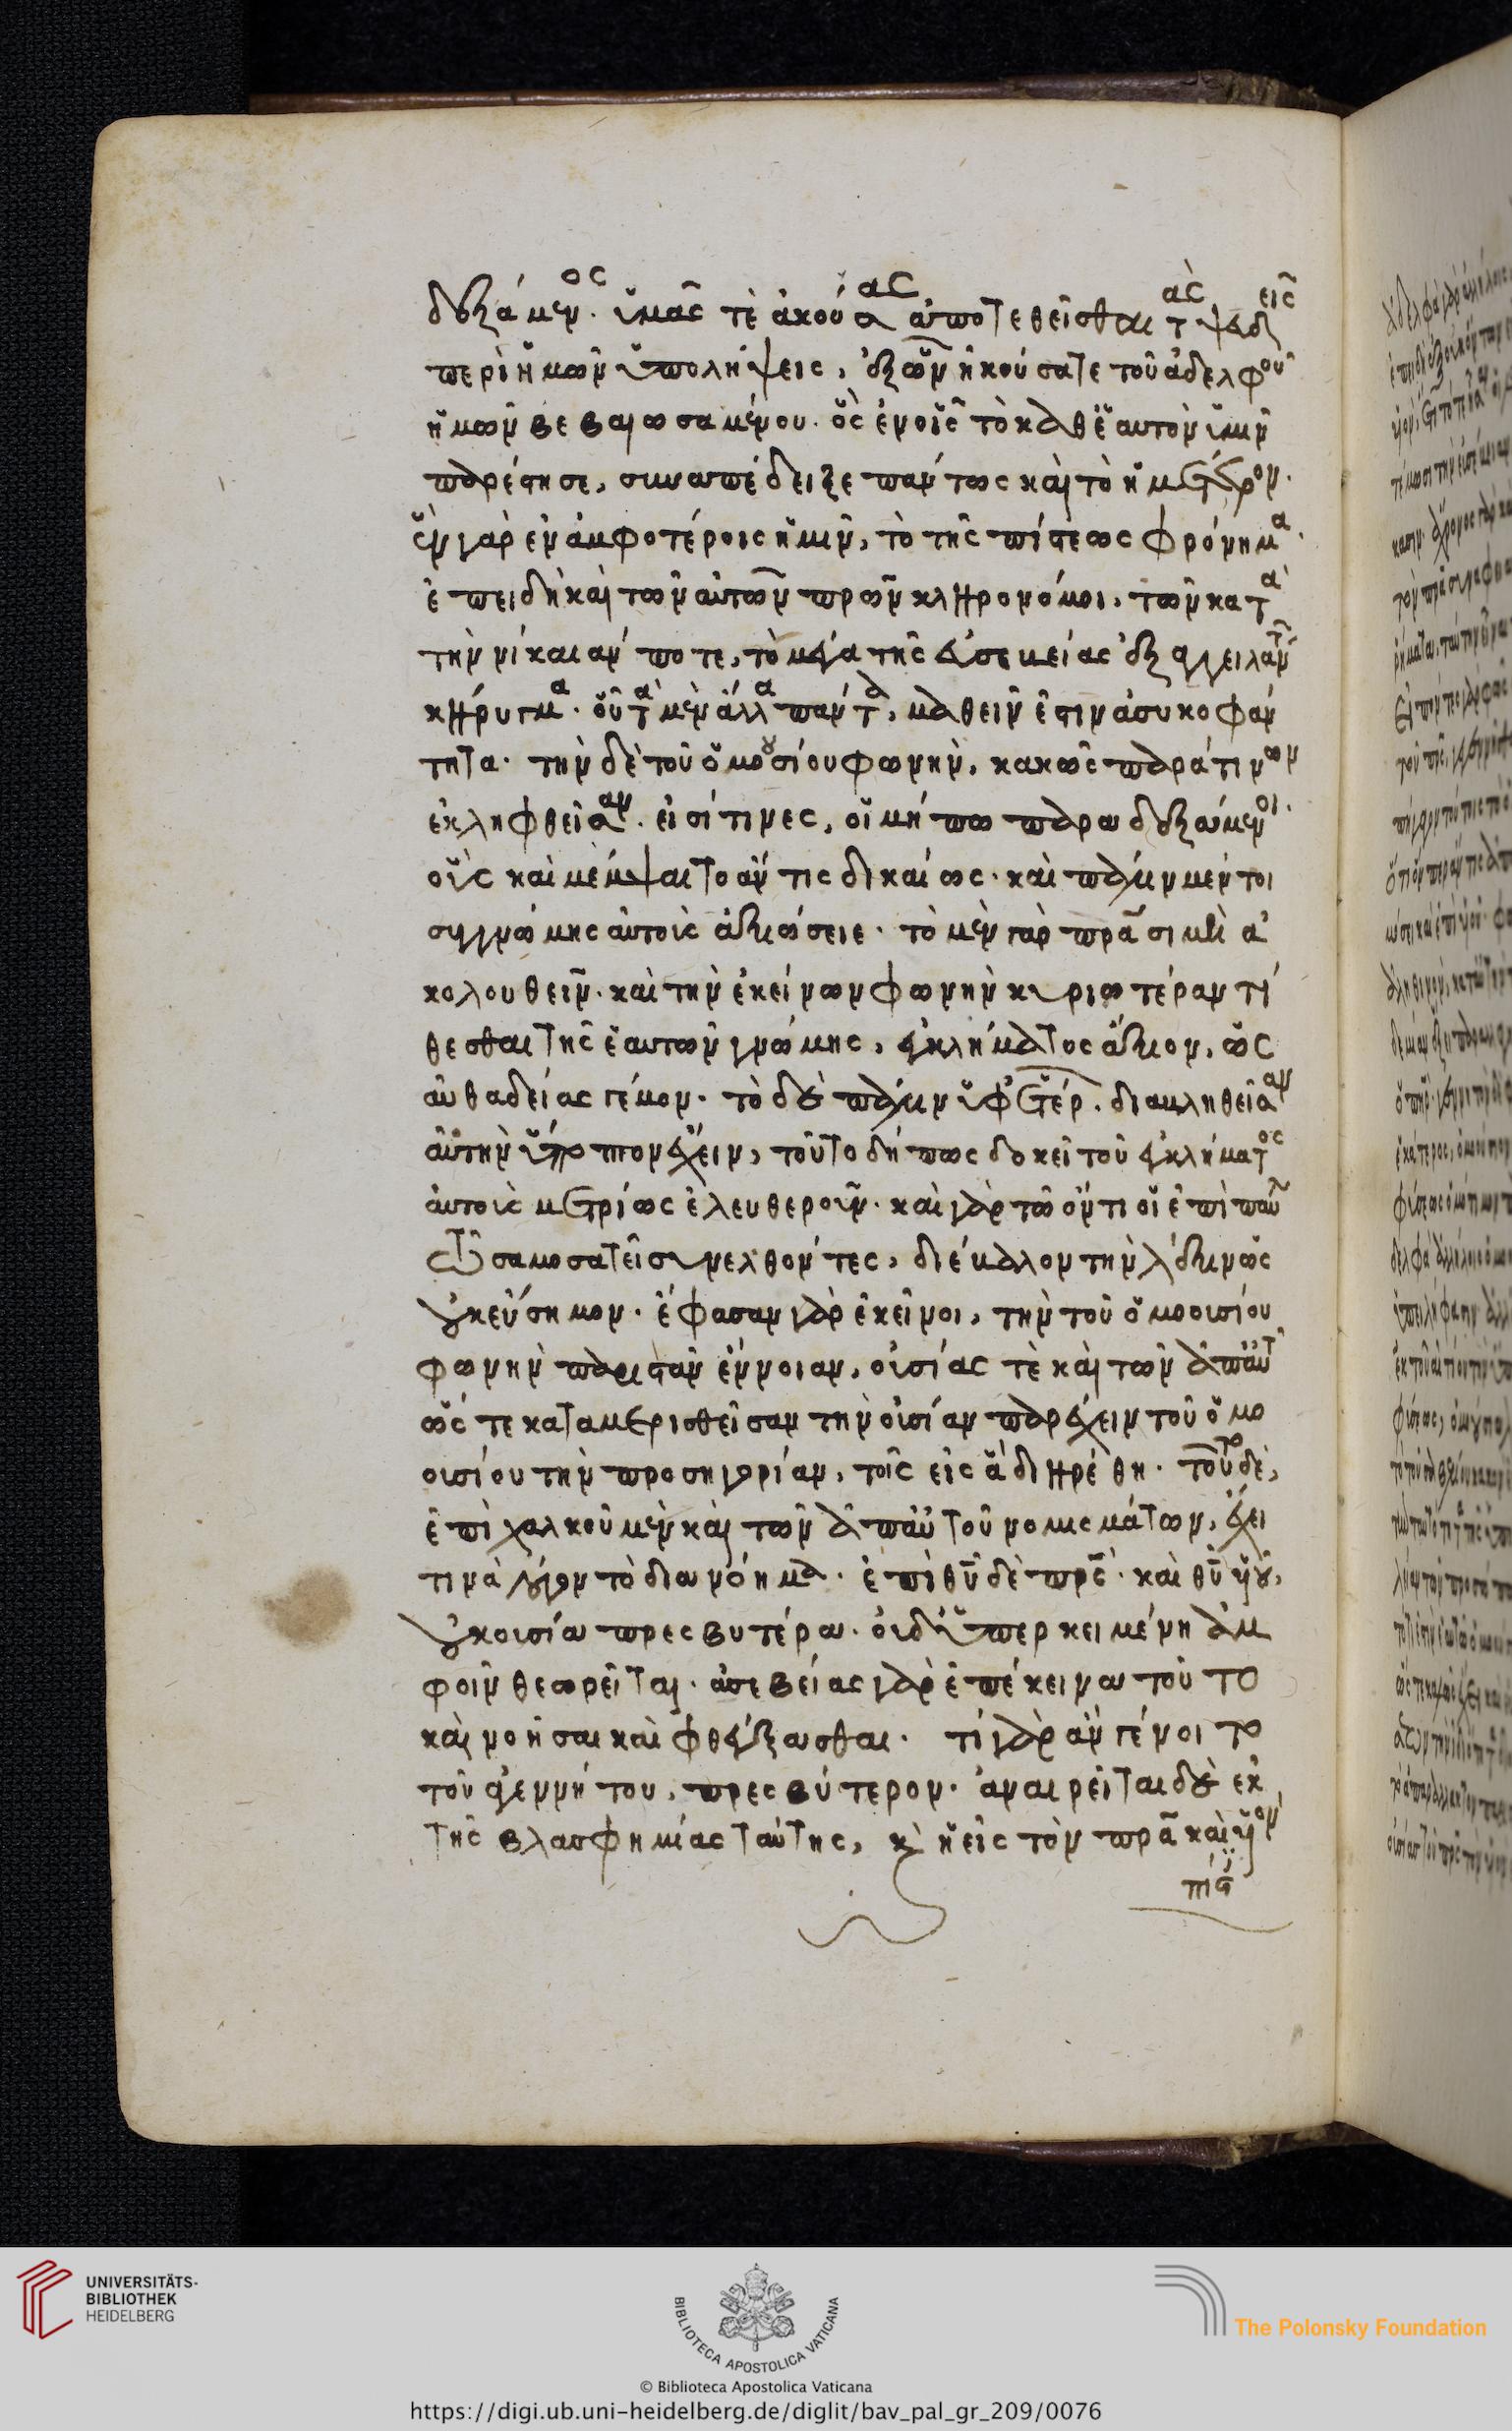 δεξάμενος. ὑμᾶς τὲ ἀκούσας ἀποτεθεῖσθαι τὰς ψευδεῖς
περὶ ἡμῶν ὑπολήψεις, ἐξ ὧν ἠκούσατε τοῦ ἀδελφοῦ
ἡμῶν βεβαιωσαμένου. ὃς ἐν οἷς τὸ καθ' ἑαυτὸν ὑμῖν
παρέστησε, συναπέδειξε πάντως καὶ τὸ ἡμέτερον.
ἓν γὰρ ἐν ἀμφοτέροις ἡμῖν, τὸ τῆς πίστεως φρόνημα.
ἐπειδὴ καὶ τῶν αὐτῶν πρων κληρονόμοι, τῶν κατὰ
τὴν νίκαιάν ποτε, τὸ μέγα τῆς εὐσεβείας ἐξαγγειλάντ
κήρυγμα. οὗ τὰ μὲν ἄλλα πάντα, μαθεῖν ἐστιν ἀσυκοφάν
τητα. τὴν δὲ τοῦ ὁμοουσίου φωνὴν, κακῶς παρά τινων
ἐκληφθεῖσαν. εἰσί τινες, οἳ μήπω παραδεξάμενοι.
οὓς καὶ μέμψαιτο ἄν τις δικαίως. καὶ πάλιν μέντοι
συγγνώμης αὐτοὺς ἀξιώσειε. τὸ μὲν γὰρ πρασι μὴ ἀ
κολουθεῖν. καὶ τὴν ἐκείνων φωνὴν κυριωτέραν τί
θεσθαι τῆς ἑαυτῶν γνώμης, ἐγκλήματος ἄξιον, ὡς
αὐθαδείας γέμον. τὸ δὲ πάλιν ὑφ' ἑτέρ. διαβληθεῖσαν
αὐτὴν ὕποπτον ἔχειν, τοῦτο δήπως δοκεῖ τοῦ ἐγκλήματος
αὐτοὺς μετρίως ἐλευθεροῦν. καὶ γὰρ τῷ ὄντι οἱ ἐπὶ παύλ
τῷ σαμοσατεῖ συνελθόντες, διέβαλον τὴν λέξιν ὡς
οὐκ εὔσημον. ἔφασαν γὰρ ἐκεῖνοι, τὴν τοῦ ὁμοουσίου
φωνὴν παριστᾶν ἔννοιαν, οὐσίας τὲ καὶ τῶν ἀπ' αὐτ
ὥς τε καταμερισθεῖσαν τὴν οὐσίαν παρέχειν τοῦ ὁμο
ουσίου τὴν προσηγορίαν, τοῖς εἰς ἃ διῃρέθη. τοῦτο δὲ,
ἐπὶ χαλκοῦ μὲν καὶ τῶν ἀπ' αὐτοῦ νομισμάτων, ἔχει
τινὰ λόγον τὸ διανόημα. ἐπὶ θυ δὲ πρς. καὶ θυ υου,
οὐκ οὐσία πρεσβυτέρα. οὐδ' ὑπερκειμένη ἀμ
φοῖν θεωρεῖται. ἀσεβείας γὰρ ἐπέκεινα τοῦτο
καὶ νοῆσαι καὶ φθέγξασθαι. τί γὰρ ἂν γένοιτο
τοῦ ἀγεννήτου, πρεσβύτερον. ἀναιρεῖται δὲ ἐκ
τῆς βλασφημίας ταύτης, καὶ ἡ εἰς τὸν πρα καὶ υον
πίς
UNIVERSITÄTS-
BIBLIOTHEK
HEIDELBERG
BIBLIOTECA APOSTOLICA VATICANA
The Polonsky Foundation
© Biblioteca Apostolica Vaticana
https://digi.ub.uni-heidelberg.de/diglit/bav_pal_gr_209/0076